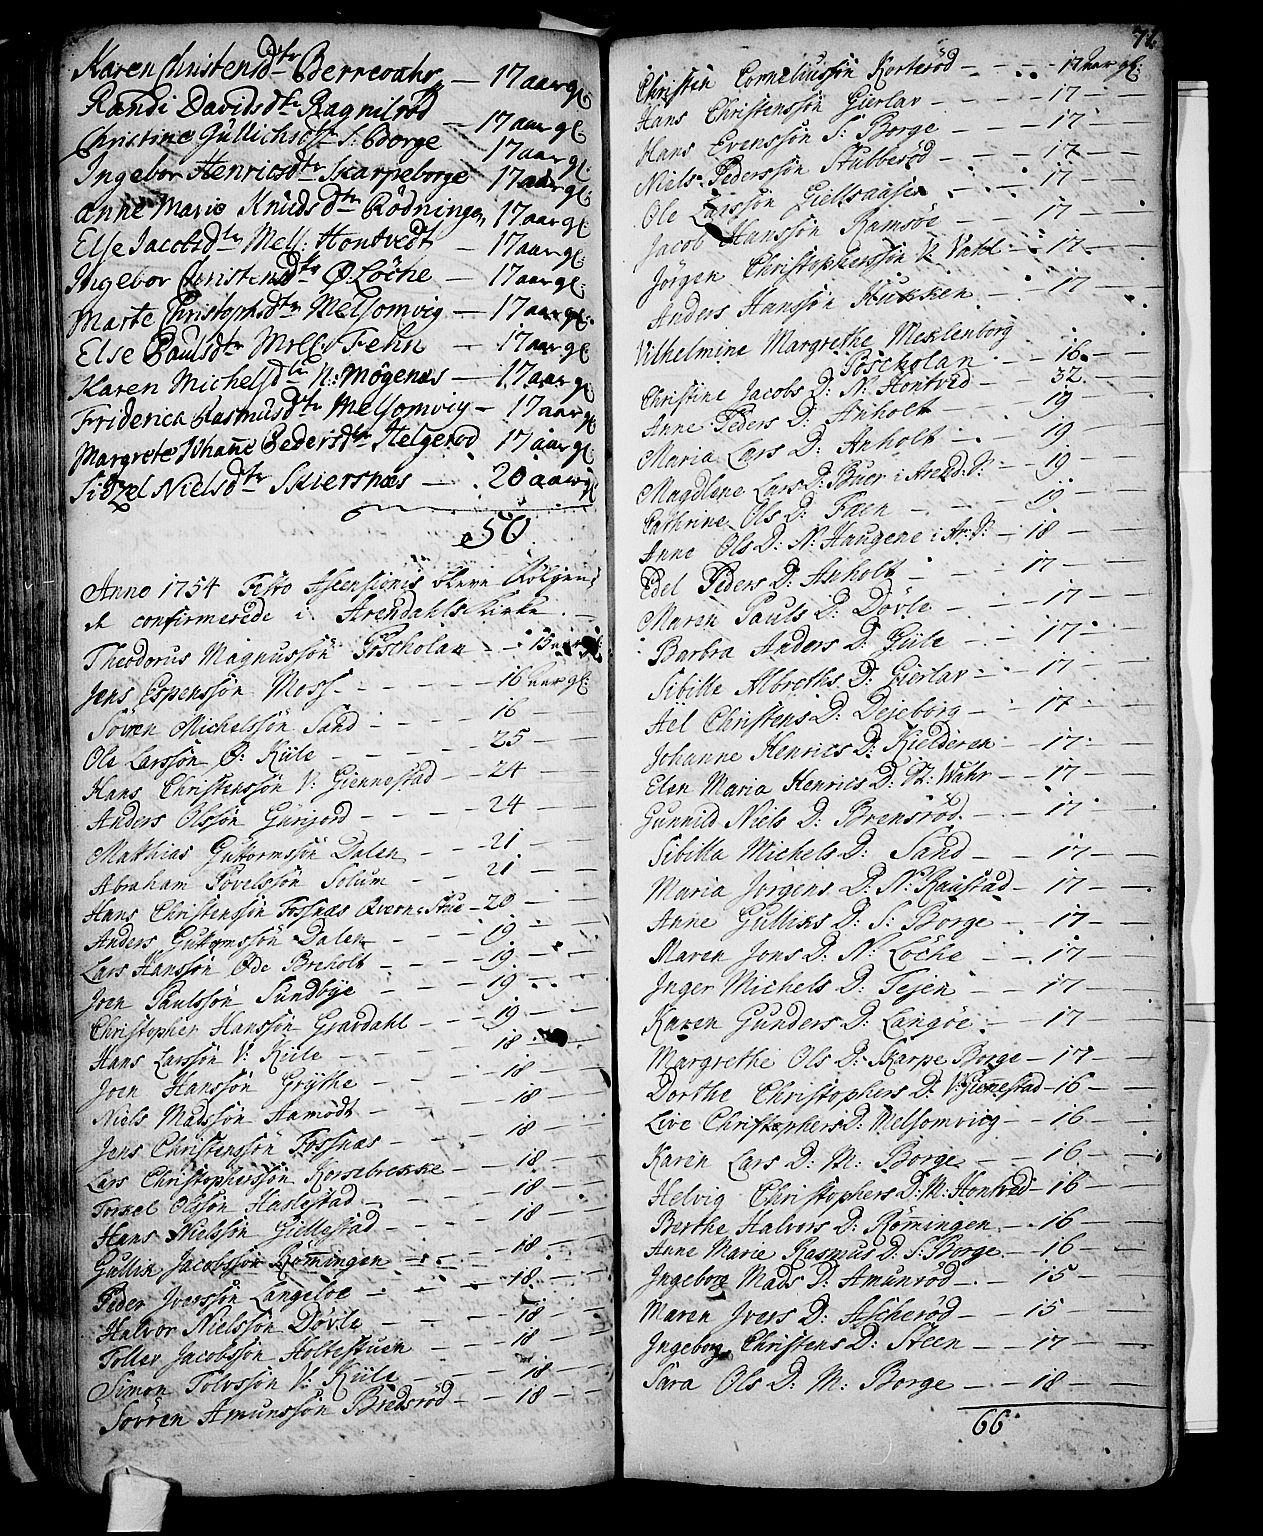 Karen Christensdtr Berrevahr — 17 aar gl:
Randi Davidsdtr Ragnilrød — 17 aar gl:
Christine Gullichsdtr S: Borge 17 aar gl:
Ingebor Henricsdtr Skarpeborge 17 aar gl:
Anne Marie Knudsdtr Rödningen 17 aar gl:
Else Jacobsdtr Mel: Hontvedt — 17 aar gl:
Ingebor Christensdtr Ø Löche — 17 aar gl:
Marte Christophsdtr Melsomvig — 17 aar gl:
Else Paulsdtr Mell: Fehn — 17 aar gl
Karen Michelsdtr N: Mögenæs — 17 aar gl
Friderica Rasmusdtr Melsomvig — 17 aar gl
Margrete Johanne Pedersdtr Helgerød 17 aar gl:
Sidzel Nielsdtr Skiersnæs — 20 aar gl
50
Anno 1754 Festo Ascensionis bleve följen
de confirmerede i Arendahls Kirke
Theodorus Magnussön Föscholan — 15 aar gl:
Jens Espenssön Moss — 16 aar gl:
Sören Michelssön Sand — 16
Ole Larssön Ø: Kiile — 25
Hans Christenssön V: Giennestad — 24
Anders Olssön Gurijord — 24
Matthias Guttormssön Dalen — 21
Abraham Povelssön Solum — 21
Hans Christenssön Fossnæs Qverne Stue — 20
Anders Guttormssön Dalen — 19
Lars Hanssön Öde Breholt — 19
Joen Paulssön Sundbye — 19
Christopher Hanssön Gravdahl — 19
Hans Larssön V: Kiile — 18
Joen Hanssön Grythe — 18
Niels Madssön Aamodt — 18
Jens Christenssön Fossnæs — 18
Lars Christopherssön Korsebrekke — 18
Torkel Olssön Haslestad — 18
Hans Nielssön Gillestad — 18
Gullik Jacobssön Römingen — 18
Peder Iverssön Langeløe — 18
Halvor Nielssön Dövle — 18
Toller Jacobssön Holtestuen — 18
Simon Tolvssön V: Kiile — 18
Sörren Amunssön Bredsrød — 18
Christen Corneliussön Korterød — 17 aar gl:
Hans Christenssön Gierlar — 17
Hans Evenssön S: Borge — 17
Niels Pederssön Stubberød — 17
Ole Larssön Giellsaasen — 17
Jacob Hanssön Ramsöe — 17
Jörgen Christopherssön N: Vahl — 17
Anders Hanssön Krukken — 17
Vilhelmine Margrethe Meklenborg
Föscholan — 16
Christine Jacobs D: N: Hontvid — 32
Anne Peders D: Anholt — 19
Maria Lars D: Anholt — 19
Magdlene Lars D: Buer i Arend: S: — 19
Cathrine Ols D: Faen — 19
Anne Ols D: N: Haugene i Ar: S: — 18
Edel Peders D: Anholt — 17
Maren Pauls D: Dövle — 17
Barbra Anders D: Giile — 17
Sibille Albreths D: Gierlar — 17
Ael Christens D: Dejeborg — 17
Johanne Henrics D: Kielderen — 17
Elen Maria Henrics D: St: Wahr — 17
Gunnild Niels D: Brensrød — 17
Sibilla Michels D: Sand — 17
Maria Jörgens D: N: Raustad — 17
Anne Gulliks D: S: Borge — 17
Maren Jons D: N: Löche — 17
Inger Michels D: Fejen — 17
Karen Gunders D: Langöe — 17
Margrethe Ols D: Skarpe Borge — 17
Dorthe Christophers D: V: Gienestad — 16
Live Christophers D: Melsomvig — 16
Karen Lars D: M: Borge — 16
Helvig Christophers D: M: Hontved — 16
Berthe Halvors D: Römingen — 16
Anne Marie Rasmus D: S: Borge — 16
Ingeborg Mads D: Amunrød — 15
Maren Ivers D: Ascherød — 15
Ingeborg Christens D: Steen — 17
Sara Ols D: M: Borge — 18
66